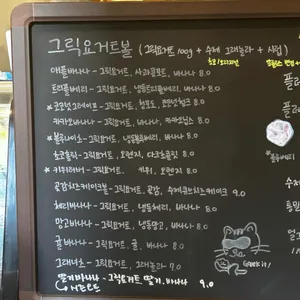 그릭요거트볼 (그릭요거트 100g + 수제 그래놀라 + 시럽)
초코/오리지널
애플바나나 - 그릭요거트, 사과콩포트, 바나나 8.0
트리플베리 - 그릭요거트, 냉동트리플베리, 바나나 8.0
코코넛그레이프 - 그릭요거트, 청포도, 코코넛청크 8.0
카카오바나나 - 그릭요거트, 바나나, 카카오닙스 8.0
블루나이츠 - 그릭요거트, 냉동블루베리, 바나나 8.0
초코홀릭 - 그릭요거트, 오렌지, 다크초콜릿 8.0
키위러버 - 그릭요거트, 키위, 오렌지 8.0
곶감치즈케이크볼 - 그릭요거트, 곶감, 수제쿠키치즈케이크 9.0
체리바나나 - 그릭요거트, 냉동체리, 바나나 8.0
망고바나나 - 그릭요거트, 냉동망고, 바나나 8.0
귤바나나 - 그릭요거트, 귤, 바나나 8.0
그래너츠 - 그릭요거트, 그래놀라 7.0
딸기바나나 - 그릭요거트, 딸기, 바나나 9.0
플러
플레
블루베리
수제
통밀
얼그